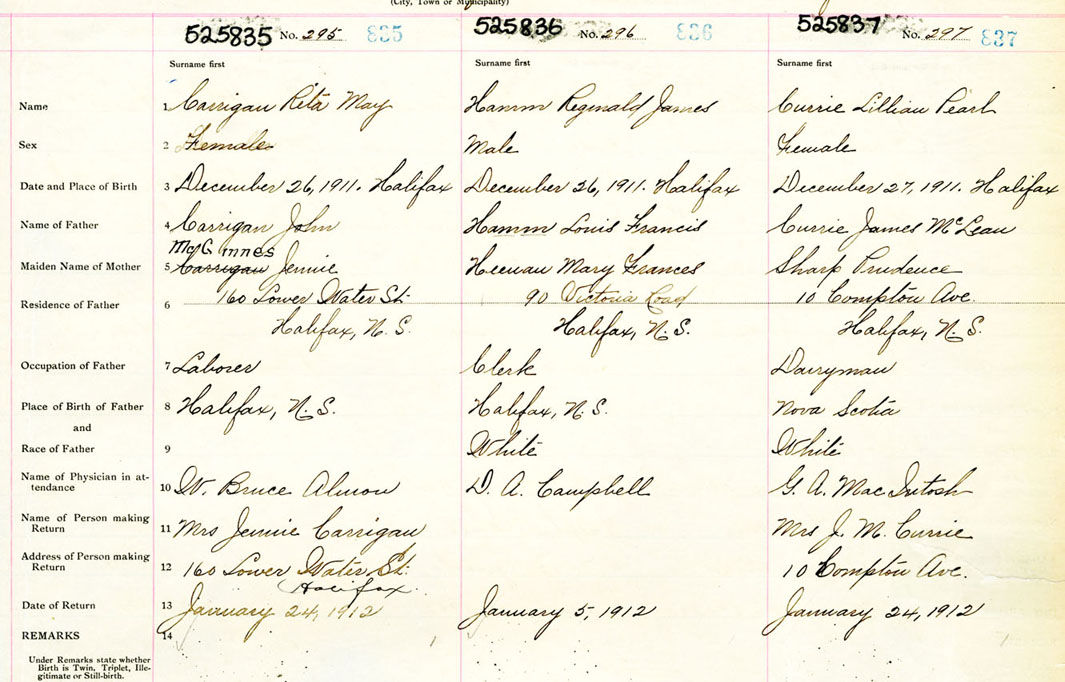 (City, Town or Municipality)
525835 No. 295 835 525836 No. 296 836 525837 No. 297 837
Surname first Surname first Surname first
Name 1 Carrigan Rita May Hamm Reginald James Currie Lillian Pearl
Sex 2 Female Male Female
Date and Place of Birth 3 December 26, 1911. Halifax December 26, 1911. Halifax December 27, 1911. Halifax
Name of Father 4 Carrigan John Hamm Louis Francis Currie James McLean
McGinnes
Maiden Name of Mother 5 Carrigan Jennie Heenan Mary Frances Sharp Prudence
Residence of Father 6 160 Lower Water St. 90 Victoria Road 10 Compton Ave.
Halifax, N.S. Halifax, N.S. Halifax, N.S.
Occupation of Father 7 Laborer Clerk Dairyman
Place of Birth of Father 8 Halifax, N.S. Halifax, N.S. Nova Scotia
and
Race of Father 9 White White
Name of Physician in at-
tendance 10 W. Bruce Almon D. A. Campbell G. A. MacIntosh
Name of Person making
Return 11 Mrs Jennie Carrigan Mrs J. M. Currie
Address of Person making
Return 12 160 Lower Water St. 10 Compton Ave.
Halifax
Date of Return 13 January 24, 1912 January 5, 1912 January 24, 1912
REMARKS 14
Under Remarks state whether
Birth is Twin, Triplet, Ille-
gitimate or Still-birth.